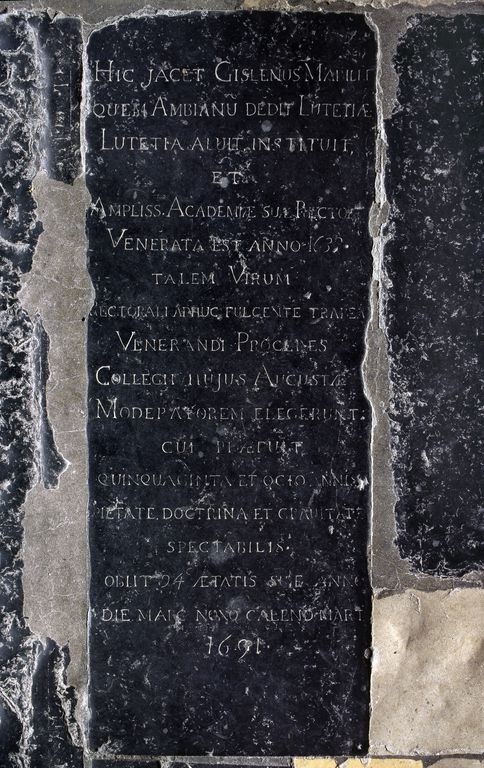 HIC JACET GISLENUS
QUEM AMBIANU DEDIT LUTETIÆ
LUTETIA ALUIT, INSTITUIT,
ET
AMPLISS. ACADEMIÆ SUÆ RECTO
VENERATA EST ANNO
TALEM VIRUM
ECTORALI ADHUC FULGENTE TRABEA
VENERANDI PROCERES
COLLEGII HUJUS AUGUSTÆ
MODERATOREM ELEGERUNT
CUI PRÆFUIT
QUINQUAGINTA ET OCTO ANNIS
PIETATE, DOCTRINA ET GRAVITATE
SPECTABILIS.
OBIIT 94 ÆTATIS SUÆ ANNO
DIE NONO CALEND. MART
1691.